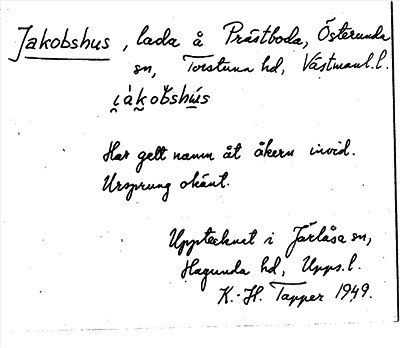 Jakobshus, lada å Prästboda, Österunda
sn, Torstuna hd, Västmanl. l.
i̯àk̯obshu̱s
Har gett namn åt åkern invid.
Ursprung okänt.
Upptecknat i Järlåsa sn,
Hagunda hd, Upps. l.
K.-H. Tapper 1949.